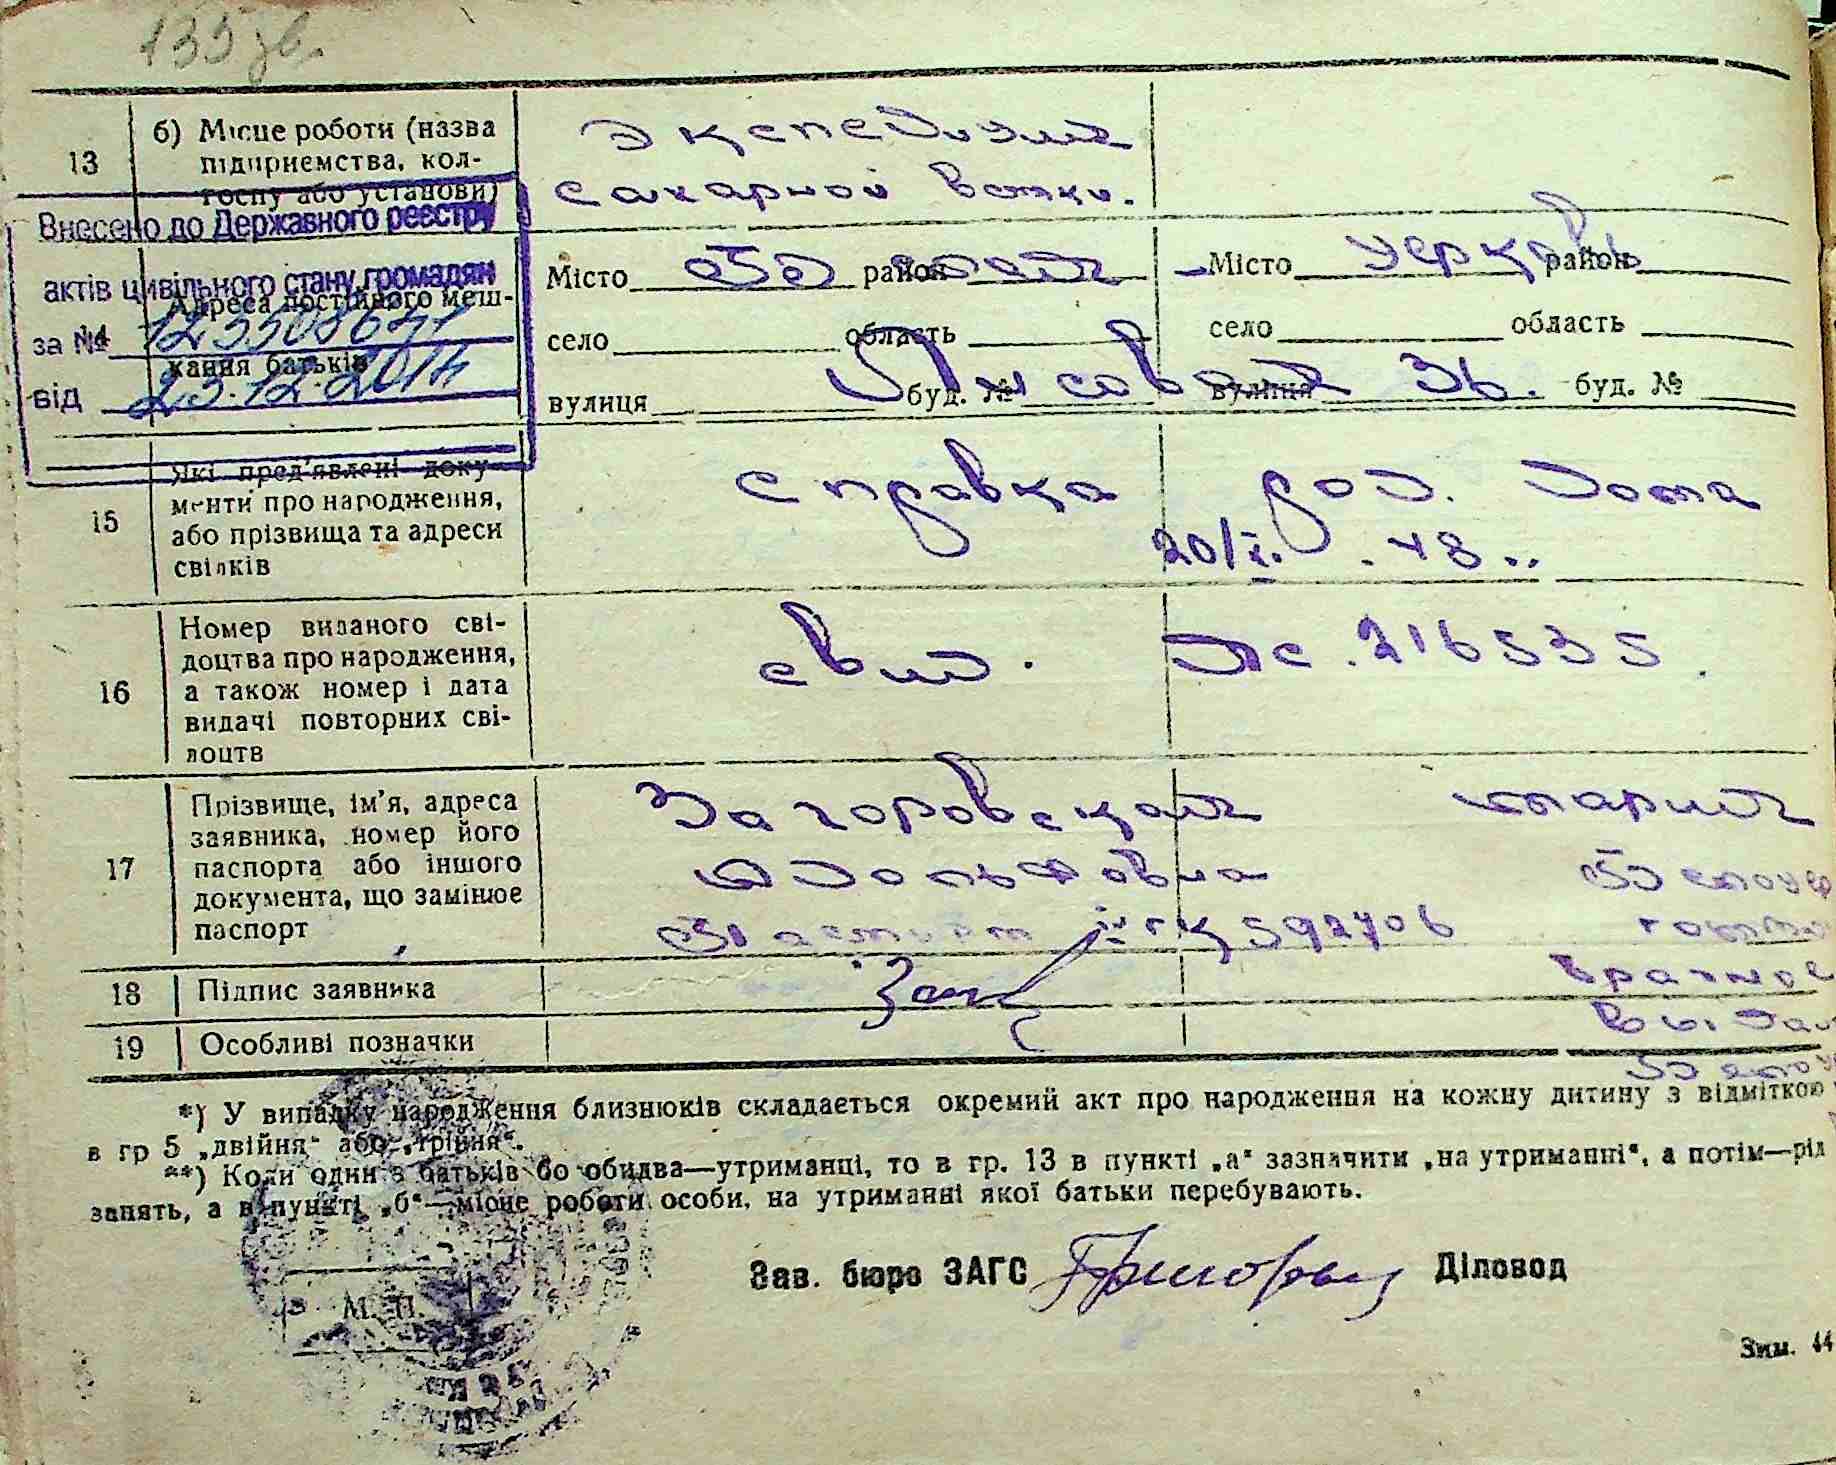 133 зв.
13
б) Місце роботи (назва
підприємства, кол-
госпу або установи)
Экспедиция
сахарной ватки.
Внесено до Державного реєстру
актів цивільного стану громадян
за №
від 23.12.2014
14
Адреса постійного меш-
кання батьків
Місто район
село область
вулиця буд. №
Місто район
село область
вулиця буд. №
36.
15
Які пред'явлені доку-
менти про народження,
або прізвища та адреси
свідків
справка род. дома
20/X. 48
16
Номер виданого сві-
доцтва про народження,
а також номер і дата
видачі повторних сві-
доцтв
свид. 216535
17
Прізвище, ім'я, адреса
заявника, номер його
паспорта або іншого
документа, що замінює
паспорт
Загоровская Мария
Адольфовна
паспорт ГК 592706
18
Підпис заявника
19
Особливі позначки
*) У випадку народження близнюків складається окремий акт про народження на кожну дитину з відміткою
в гр 5 „двійня“ або „трійня“.
**) Коли один з батьків бо обидва—утриманці, то в гр. 13 в пункті „а“ зазначити „на утриманні“, а потім—рід
занять, а в пункті „б“—місце роботи особи, на утриманні якої батьки перебувають.
М. П.
Зав. бюро ЗАГС
Діловод
Зим. 44